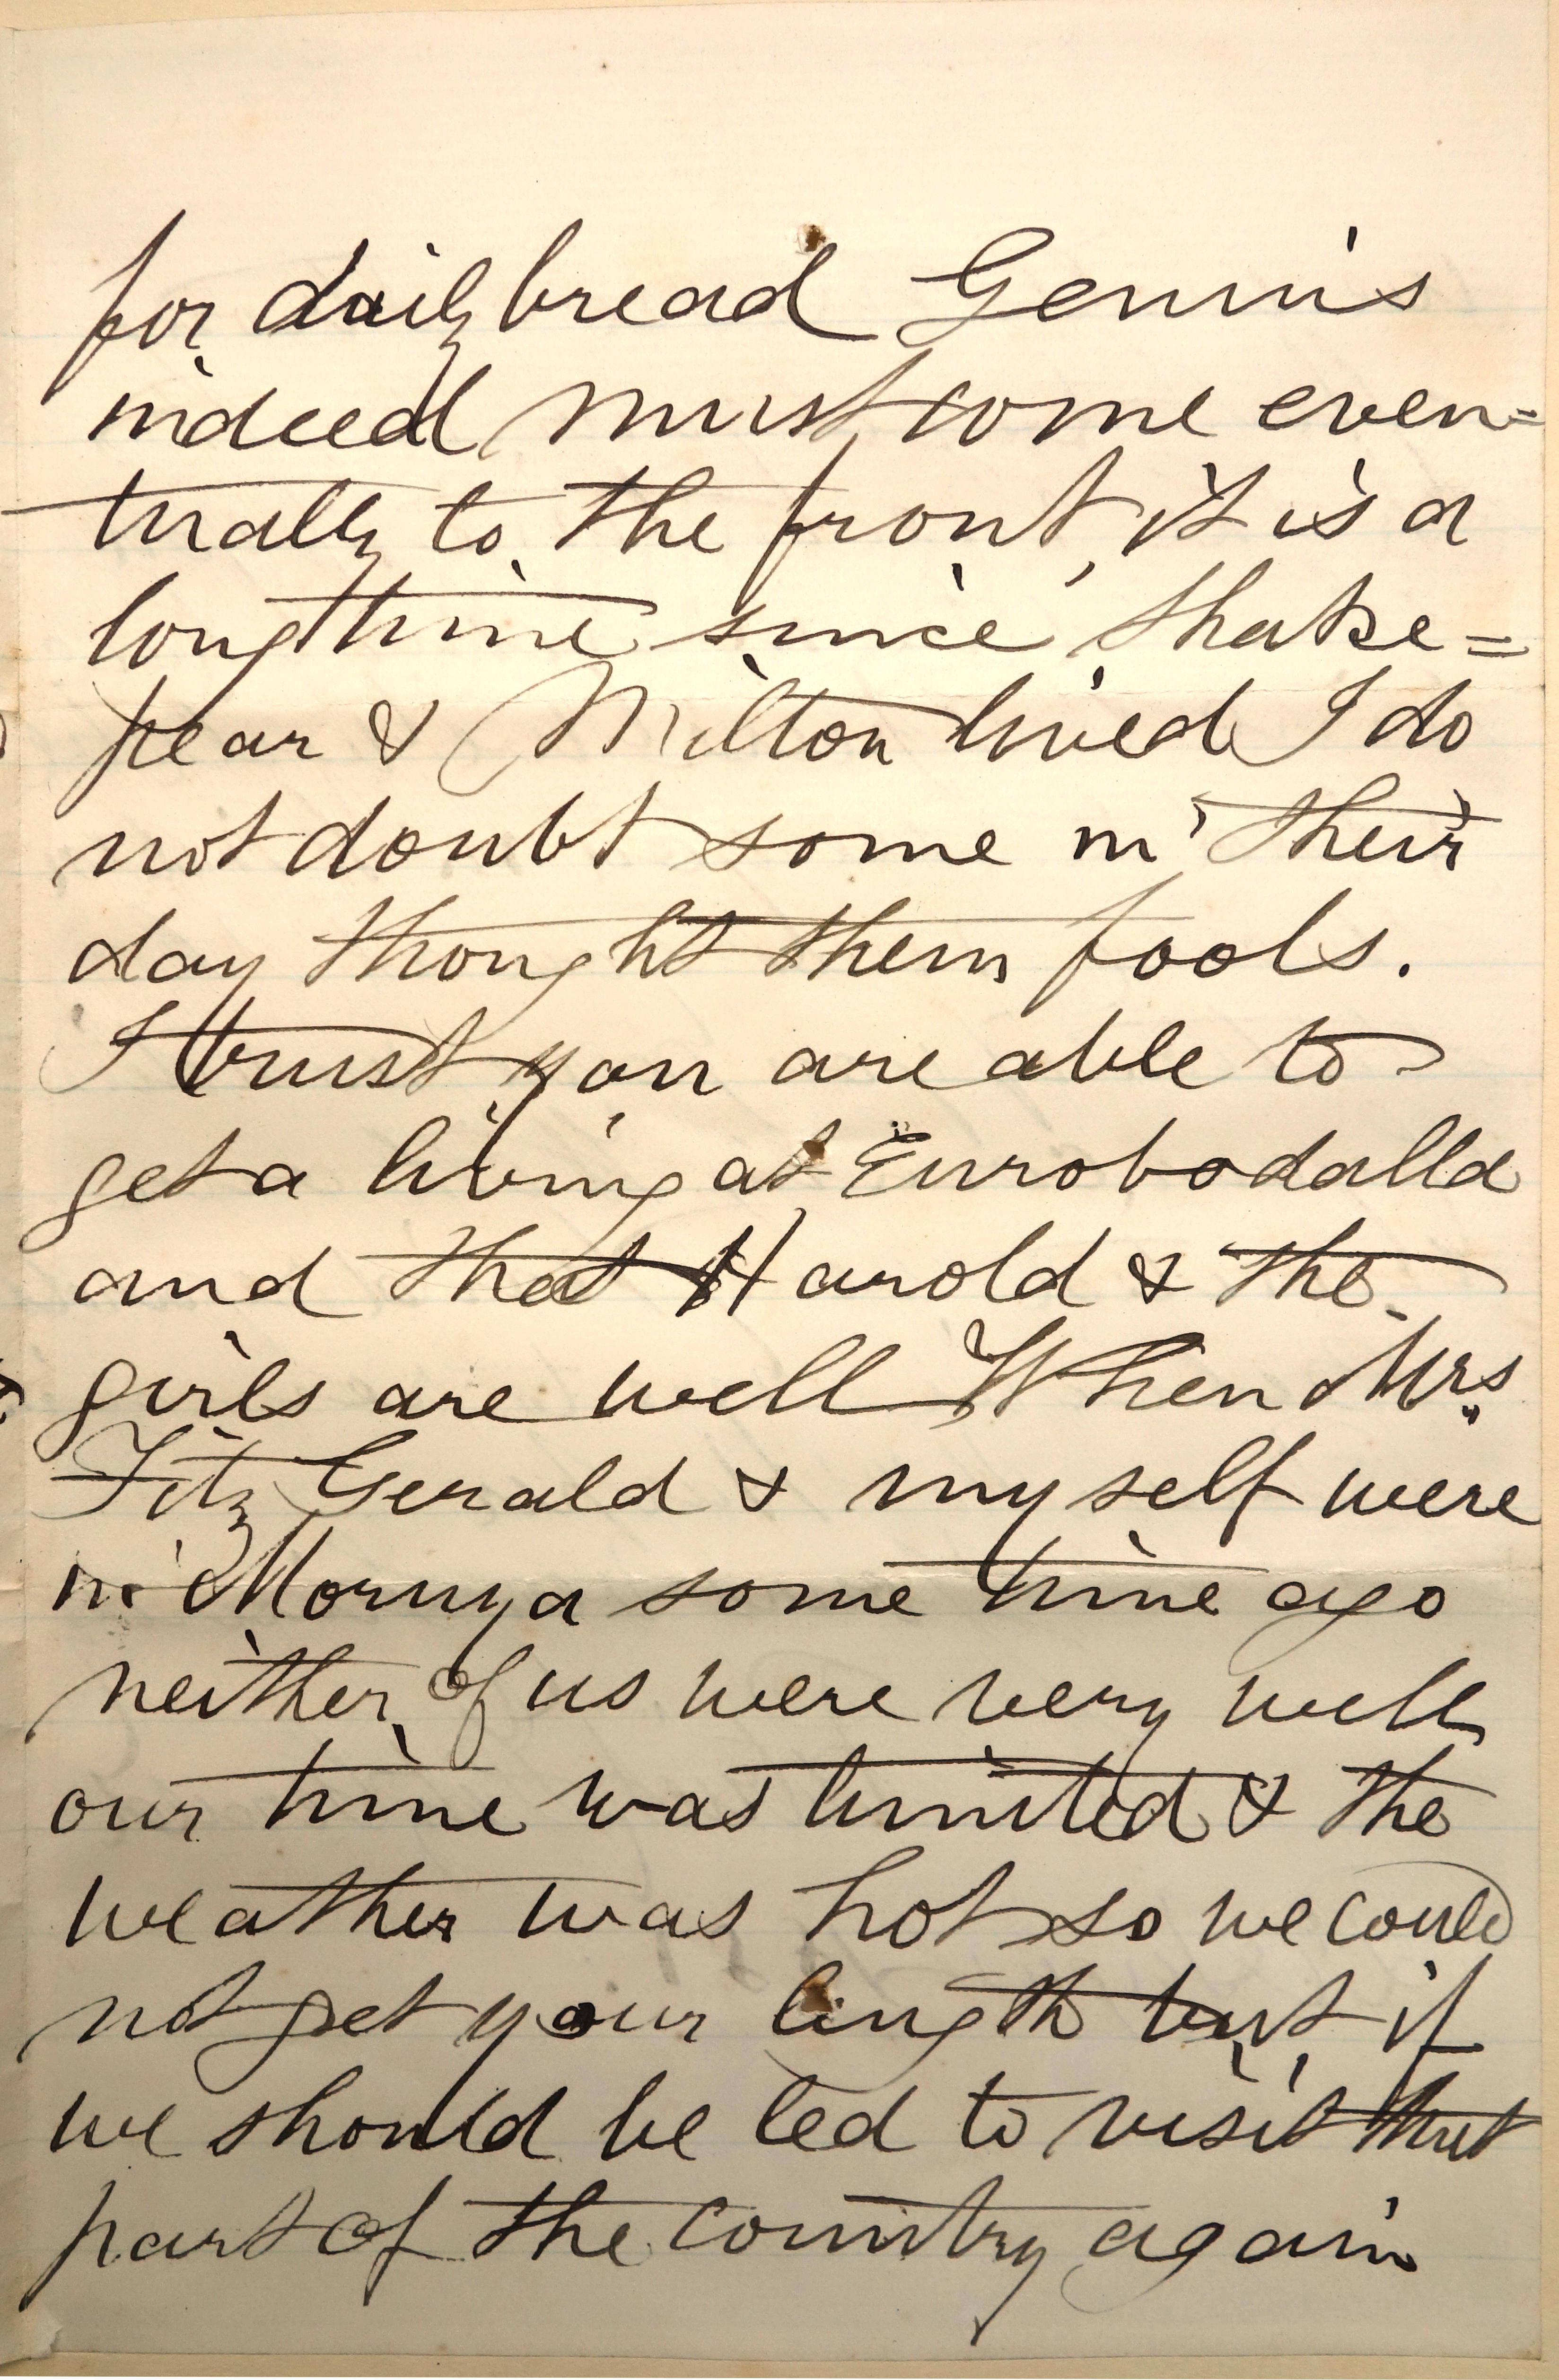 for daily bread Genius
indeed must come even=
tually to the front, it is a
long time since Shake=
pear & Milton lived I do
not doubt some in their
day thought them fools.
I trust you are able to
get a living at Eurobodalla
and that Harold & the
girls are well When Mrs
Fitz Gerald & myself were
in Moruya some time ago
neither of us were very well
our time was limited & the
weather was hot so we could
not get your length but if
we should be led to visit that
part of the country again